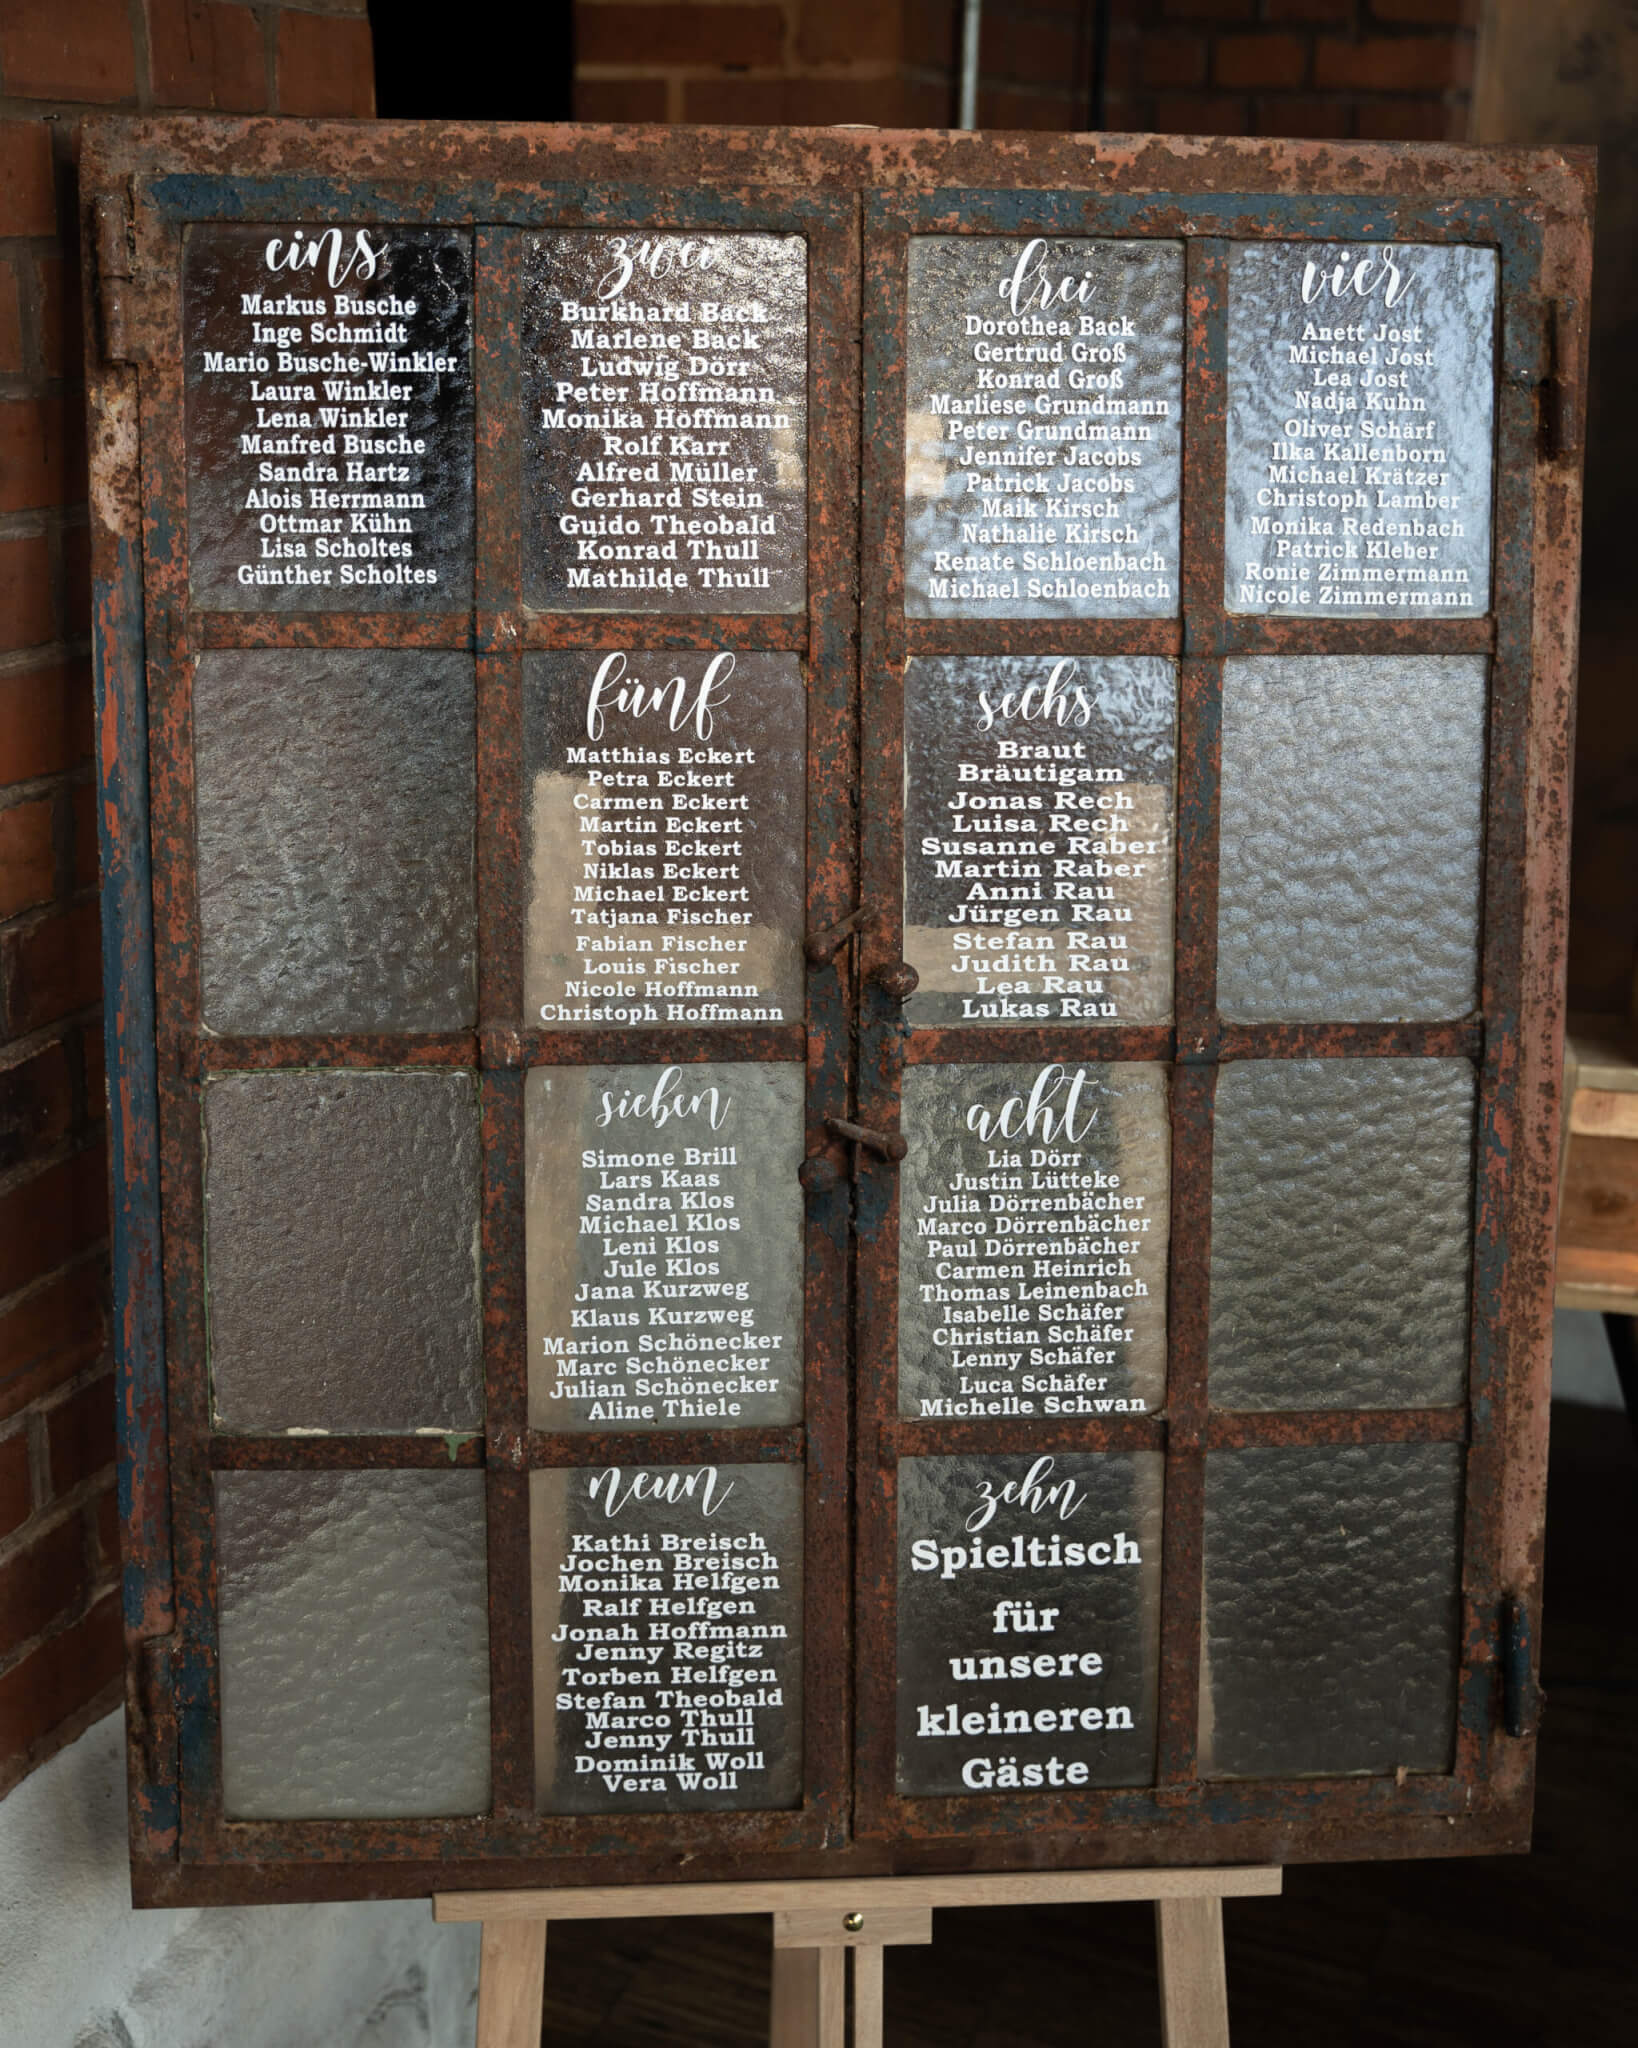 eins
Markus Busche
Inge Schmidt
Mario Busche-Winkler
Laura Winkler
Lena Winkler
Manfred Busche
Sandra Hartz
Alois Herrmann
Ottmar Kühn
Lisa Scholtes
Günther Scholtes
zwei
Burkhard Back
Marlene Back
Ludwig Dörr
Peter Hoffmann
Monika Hoffmann
Rolf Karr
Alfred Müller
Gerhard Stein
Guido Theobald
Konrad Thull
Mathilde Thull
drei
Dorothea Back
Gertrud Groß
Konrad Groß
Marliese Grundmann
Peter Grundmann
Jennifer Jacobs
Patrick Jacobs
Maik Kirsch
Nathalie Kirsch
Renate Schloenbach
Michael Schloenbach
vier
Anett Jost
Michael Jost
Lea Jost
Nadja Kuhn
Oliver Schärf
Ilka Kallenborn
Michael Krätzer
Christoph Lamber
Monika Redenbach
Patrick Kleber
Ronie Zimmermann
Nicole Zimmermann
fünf
Matthias Eckert
Petra Eckert
Carmen Eckert
Martin Eckert
Tobias Eckert
Niklas Eckert
Michael Eckert
Tatjana Fischer
Fabian Fischer
Louis Fischer
Nicole Hoffmann
Christoph Hoffmann
sechs
Braut
Bräutigam
Jonas Rech
Luisa Rech
Susanne Raber
Martin Raber
Anni Rau
Jürgen Rau
Stefan Rau
Judith Rau
Lea Rau
Lukas Rau
sieben
Simone Brill
Lars Kaas
Sandra Klos
Michael Klos
Leni Klos
Jule Klos
Jana Kurzweg
Klaus Kurzweg
Marion Schönecker
Marc Schönecker
Julian Schönecker
Aline Thiele
acht
Lia Dörr
Justin Lütteke
Julia Dörrenbächer
Marco Dörrenbächer
Paul Dörrenbächer
Carmen Heinrich
Thomas Leinenbach
Isabelle Schäfer
Christian Schäfer
Lenny Schäfer
Luca Schäfer
Michelle Schwan
neun
Kathi Breisch
Jochen Breisch
Monika Helfgen
Ralf Helfgen
Jonah Hoffmann
Jenny Regitz
Torben Helfgen
Stefan Theobald
Marco Thull
Jenny Thull
Dominik Woll
Vera Woll
zehn
Spieltisch
für
unsere
kleineren
Gäste